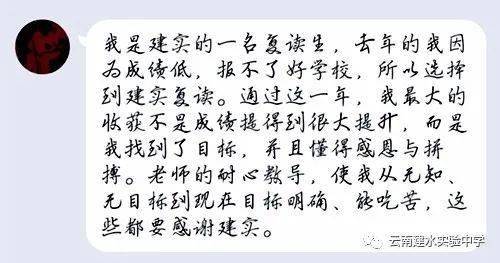 我是建实的一名复读生，去年的我因
为成绩低，报不了好学校，所以选择
到建实复读。通过这一年，我最大的
收获不是成绩提得到很大提升，而是
我找到了目标，并且懂得感恩与拼
搏。老师的耐心教导，使我从无知、
无目标到现在目标明确、能吃苦，这
些都要感谢建实。
云南建水实验中学